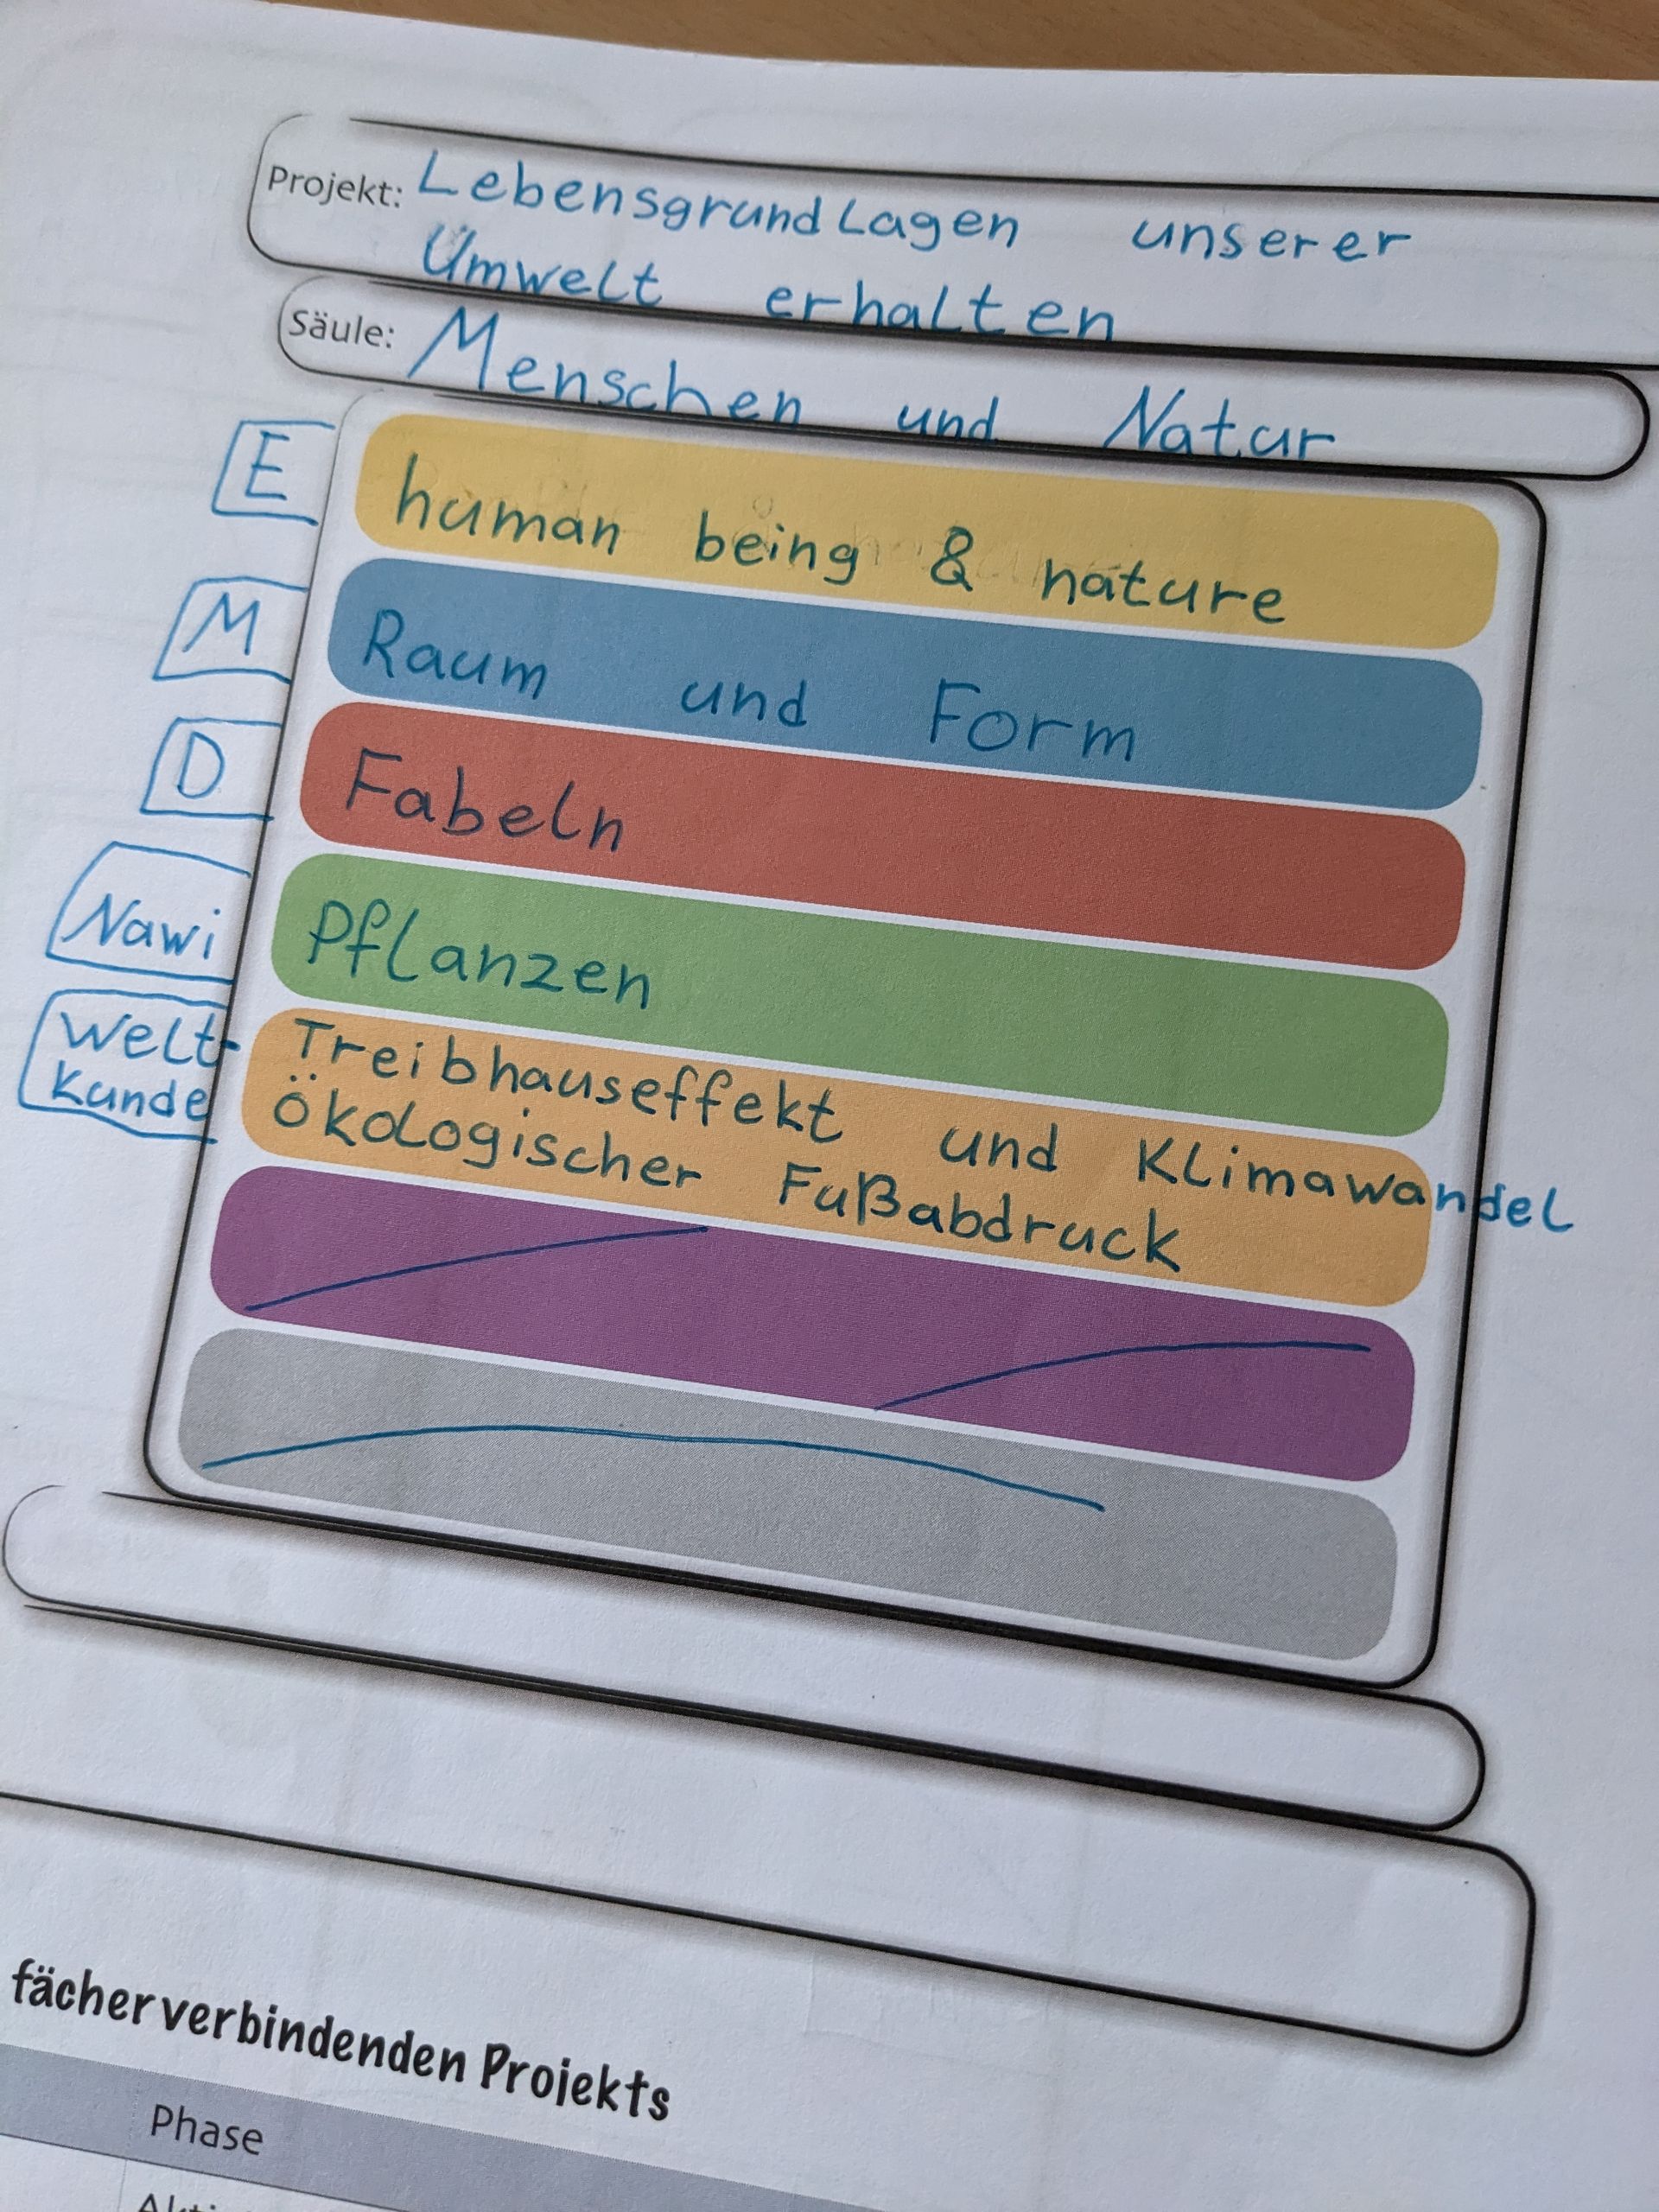 Projekt: Lebensgrundlagen unserer
Umwelt erhalten
Säule: Menschen und Natur
E human being & nature
M Raum und Form
D Fabeln
Nawi Pflanzen
Welt- Treibhauseffekt und Klimawandel
kunde ökologischer Fußabdruck
fächerverbindenden Projekts
Phase